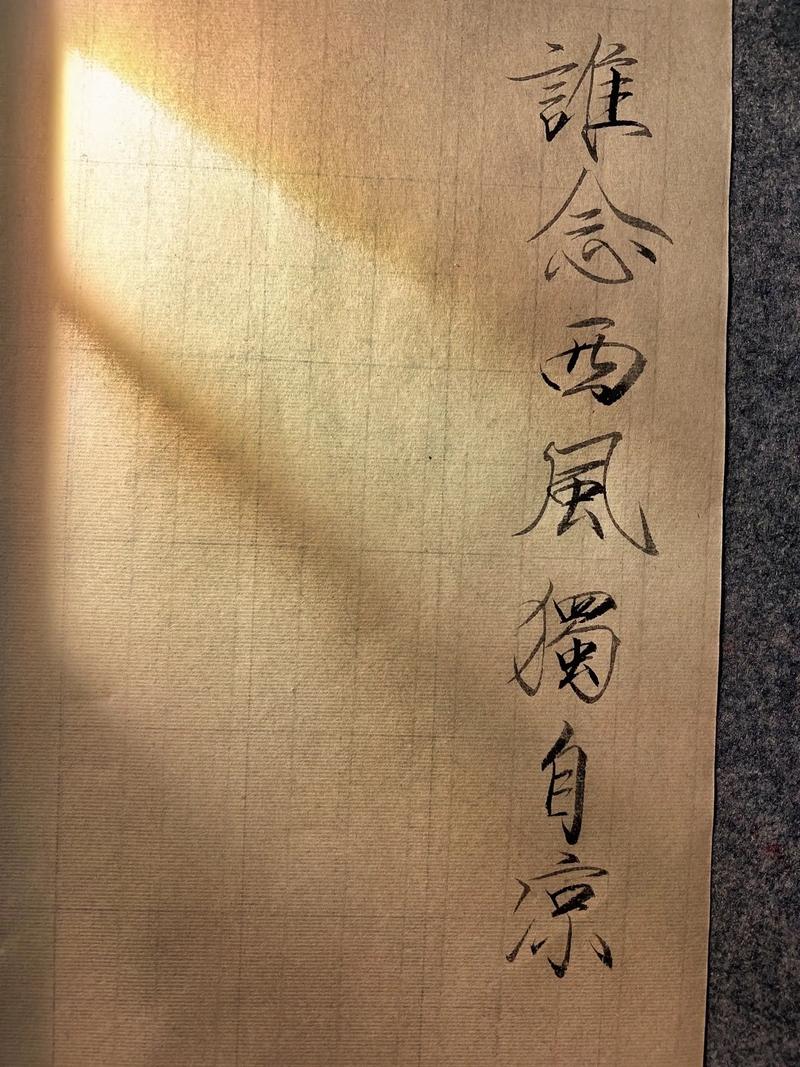 誰念西風獨自凉